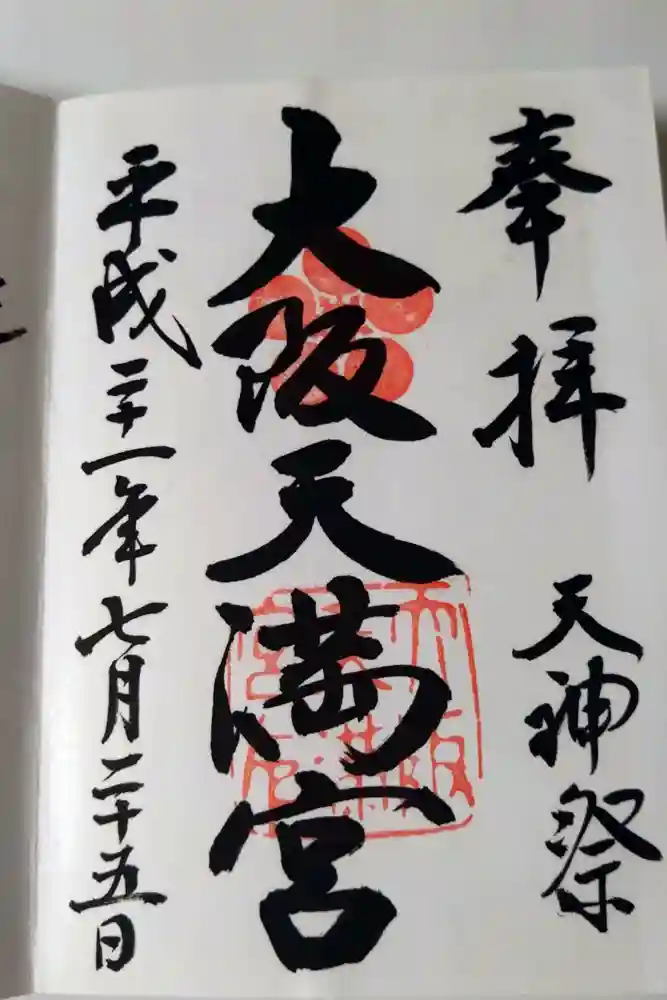 奉拝
天神祭
大阪天満宮
平成二十一年七月二十五日